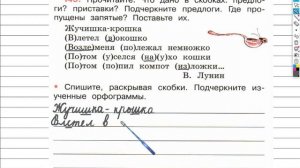 Прочитайте. Что дано в скобках: предло-
ги? приставки? Подчеркните предлоги. Где про-
пущены запятые? Поставьте их.
Жучишка-крошка
(В)летел (в)окошко
(Возле)меня (по)лежал немножко
(По)том (у)селся (на)(у)хо кошки
(По)том (по)пил компот (из)ложки...
В. Лунин
Спишите, раскрывая скобки. Подчеркните из-
ученные орфограммы.
Жучишка - крошка
Влетел в